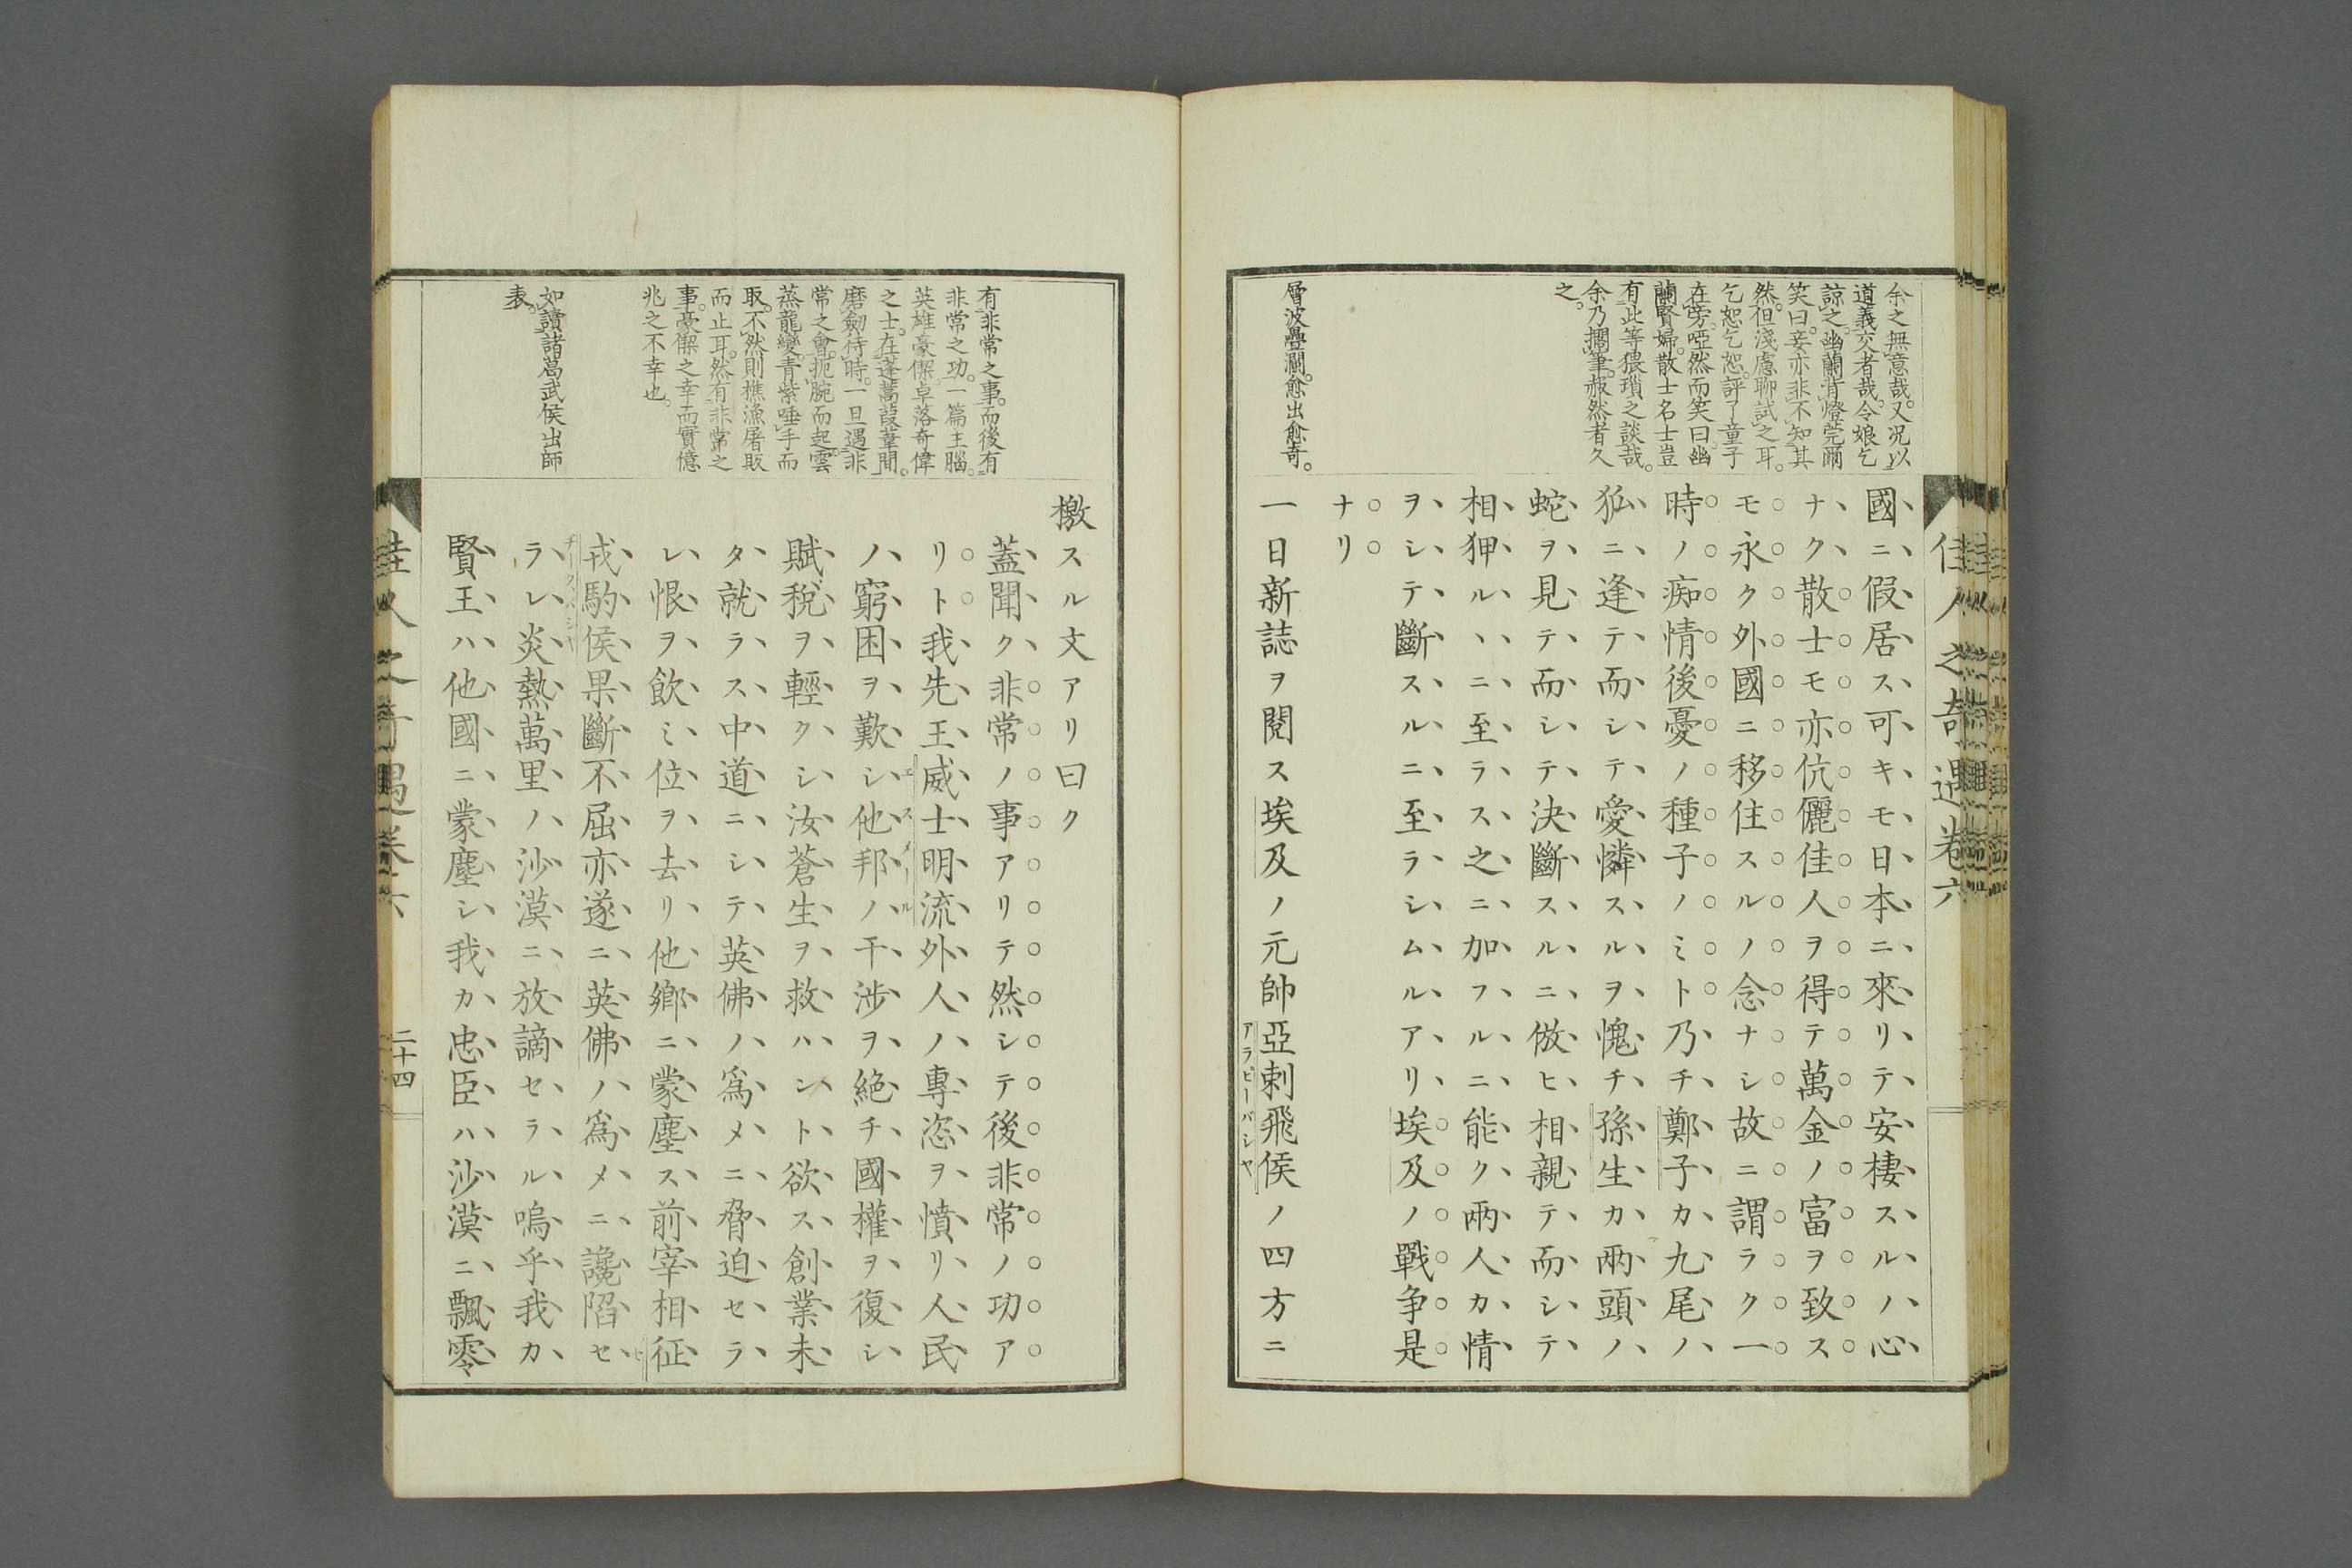 余之無意哉。又况以
道義交者哉。令娘乞
諒之。幽蘭背燈莞爾
笑曰。妾亦非不知其
然。但淺慮聊試之耳。
乞恕乞恕。評了童子
在旁。啞然而笑曰。幽
蘭賢婦。散士名士豈
有此等猥瑣之談哉。
余乃擱筆。赧然者久
之。
層波疊瀾。愈出愈奇。
國ニ假居ス可キモ日本ニ來リテ安棲スルノ心
ナク散士モ亦伉儷佳人ヲ得テ萬金ノ富ヲ致ス
モ永ク外國ニ移住スルノ念ナシ故ニ謂ラク一
時ノ痴情後憂ノ種子ノミト乃チ鄭子カ九尾ノ
狐ニ逢テ而シテ愛憐スルヲ愧チ孫生カ兩頭ノ
蛇ヲ見テ而シテ決斷スルニ倣ヒ相親テ而シテ
相狎ルヽニ至ラス之ニ加フルニ能ク兩人カ情
ヲシテ斷スルニ至ラシムルアリ埃及ノ戰争是
ナリ
一日新誌ヲ閱ス埃及ノ元帥亞剌飛侯ノ四方ニ
アラビーバシヤ
佳人之奇遇卷六
有非常之事。而後有
非常之功。一篇主腦。
英雄豪傑卓落奇偉
之士。在蓬蒿葭葦間。
磨劒待時。一旦遇非
常之會。扼腕而起。雲
蒸龍變。青紫唾手而
取。不然則樵漁屠販
而止耳。然有非常之
事。豪傑之幸而實億
兆之不幸也。
如讀諸葛武侯出師
表。
檄スル文アリ曰ク
蓋聞ク非常ノ事アリテ然シテ後非常ノ功ア
リト我先王威士明流外人ノ專恣ヲ憤リ人民
エスメール
ノ窮困ヲ歎シ他邦ノ干涉ヲ絶チ國權ヲ復シ
賦稅ヲ輕クシ汝蒼生ヲ救ハント欲ス創業未
タ就ラス中道ニシテ英佛ノ爲メニ脅迫セラ
レ恨ヲ飮ミ位ヲ去リ他鄕ニ蒙塵ス前宰相征
戎駒侯果斷不屈亦遂ニ英佛ノ爲メニ讒陷セ
ラレ炎熱萬里ノ沙漠ニ放謫セラル嗚乎我カ
賢王ハ他國ニ蒙塵シ我カ忠臣ハ沙漠ニ飄零
佳人之奇遇卷六
二十四